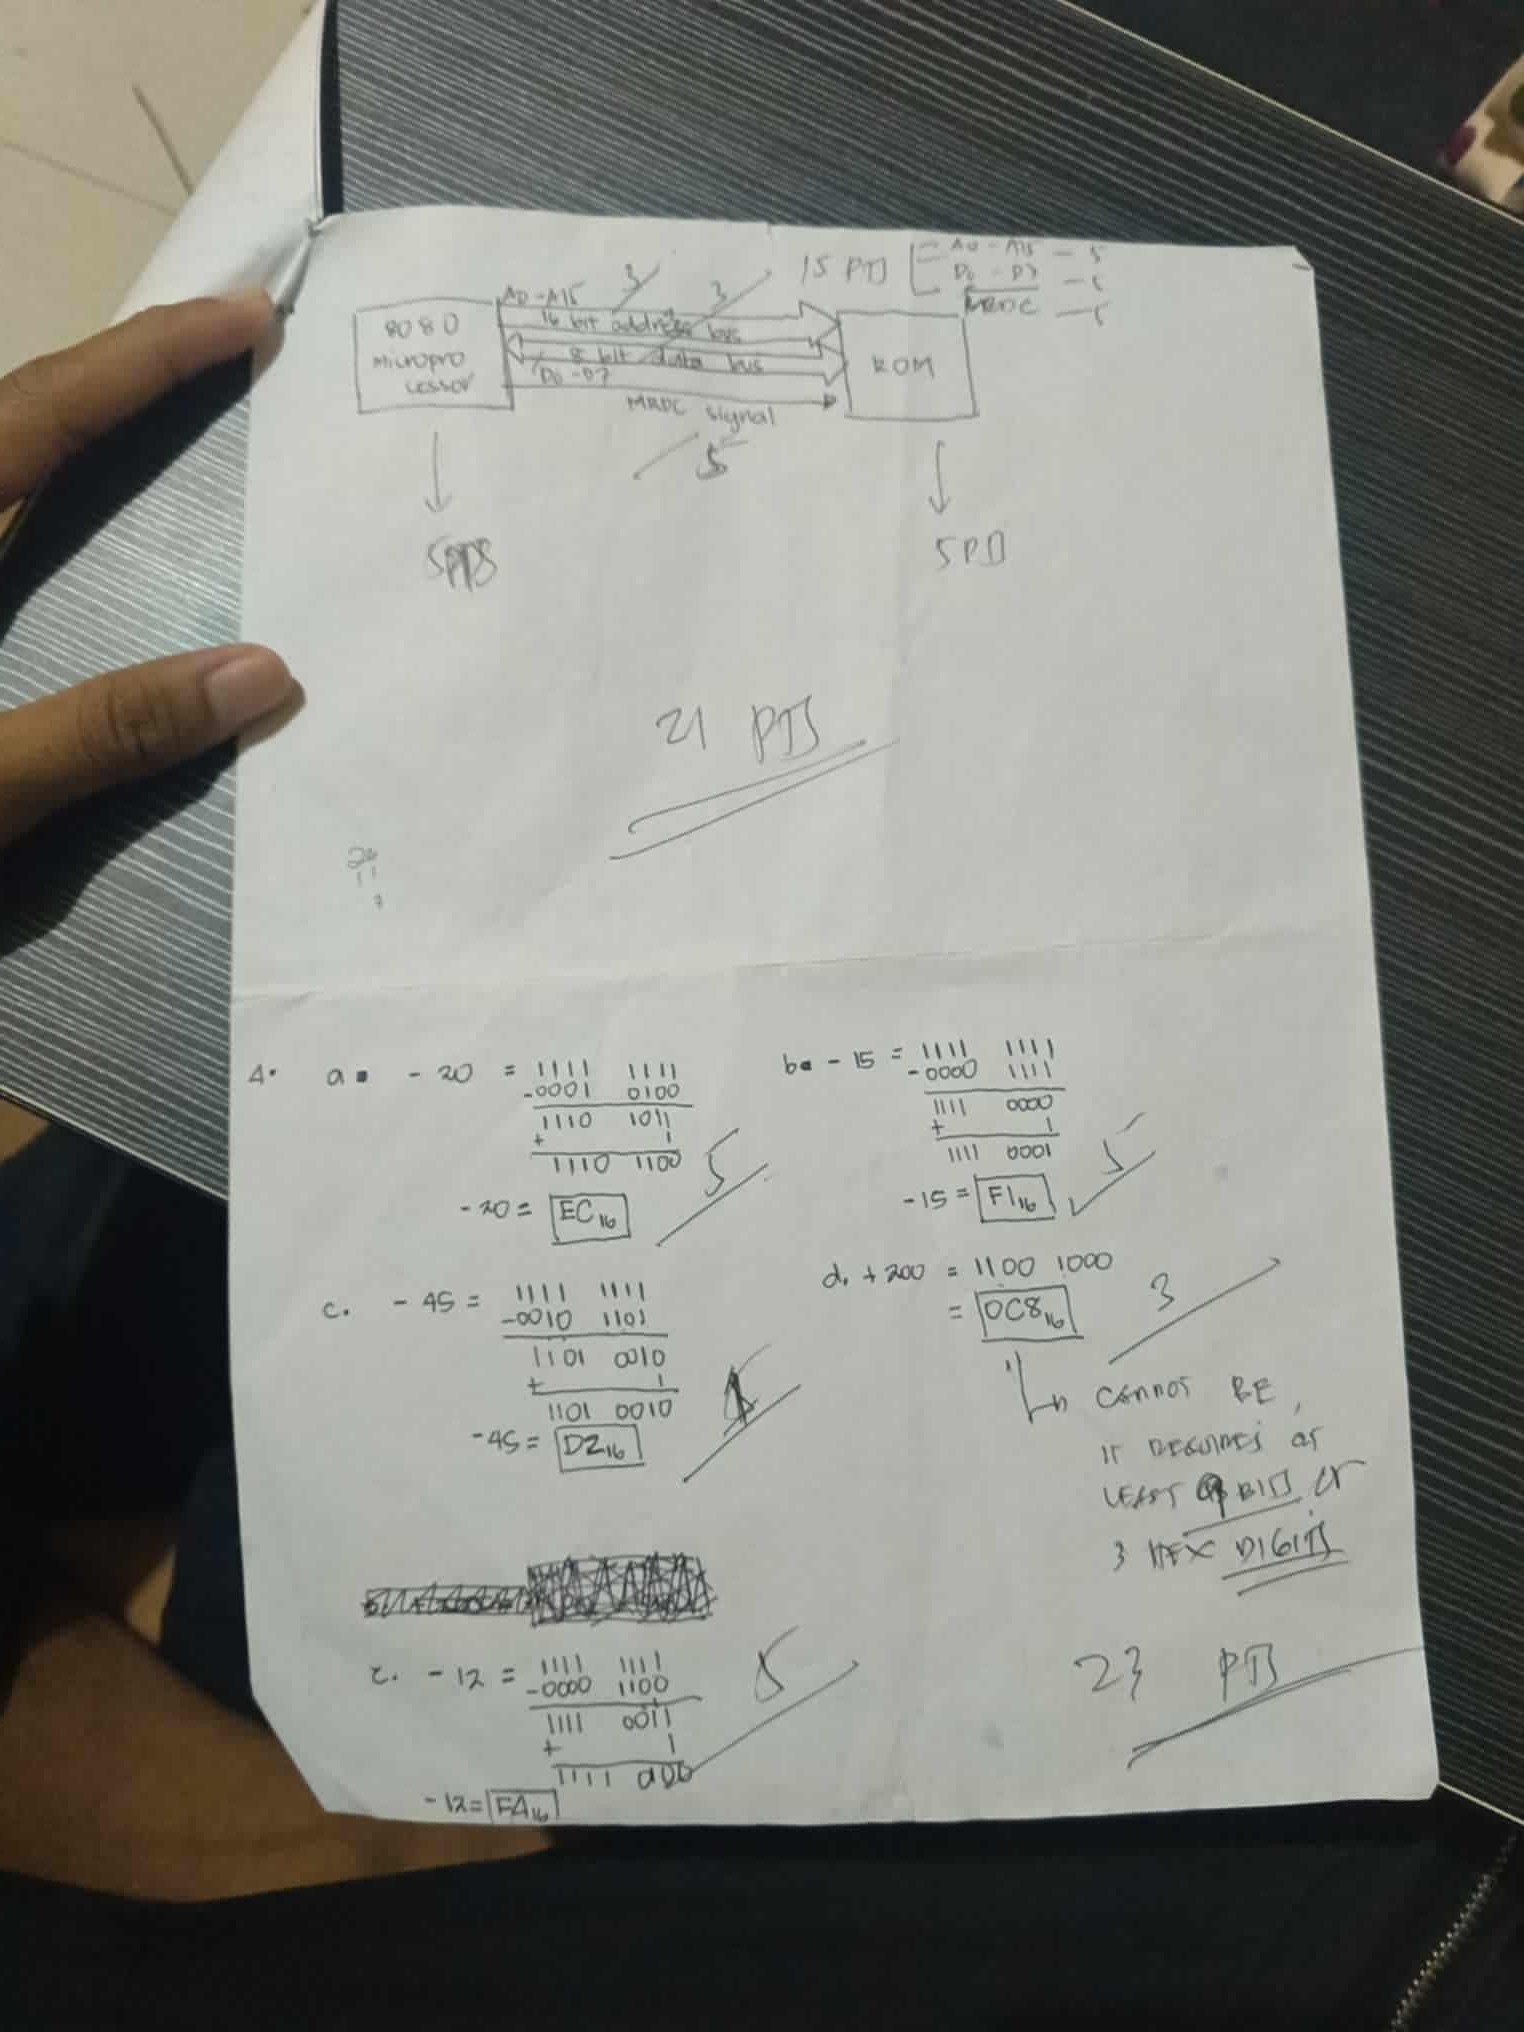 15 PTS
A0 - A15 - 5
D0 - D7 - 5
MRDC - 5
3
3
A0-A15
16 bit address bus
8 bit data bus
D0-D7
MRDC signal
5
8080
micropro
cessor
ROM
5PTS
5PTS
21 PTS
4. a. -20 = 1111 1111
-0001 0100
1110 1011
+ 1
1110 1100
-20 = EC16
5
b. -15 = 1111 1111
-0000 1111
1111 0000
+ 1
1111 0001
-15 = F116
5
c. -45 = 1111 1111
-0010 1101
1101 0010
+ 1
1101 0010
-45 = D216
d. +200 = 1100 1000
= 0C816
3
CANNOT BE,
IT REQUIRES AT
LEAST 9 BITS or
3 HEX DIGITS
-12 = 1111 1111
-0000 1100
1111 0011
+ 1
1111
-12 = FA16
5
23 PTS